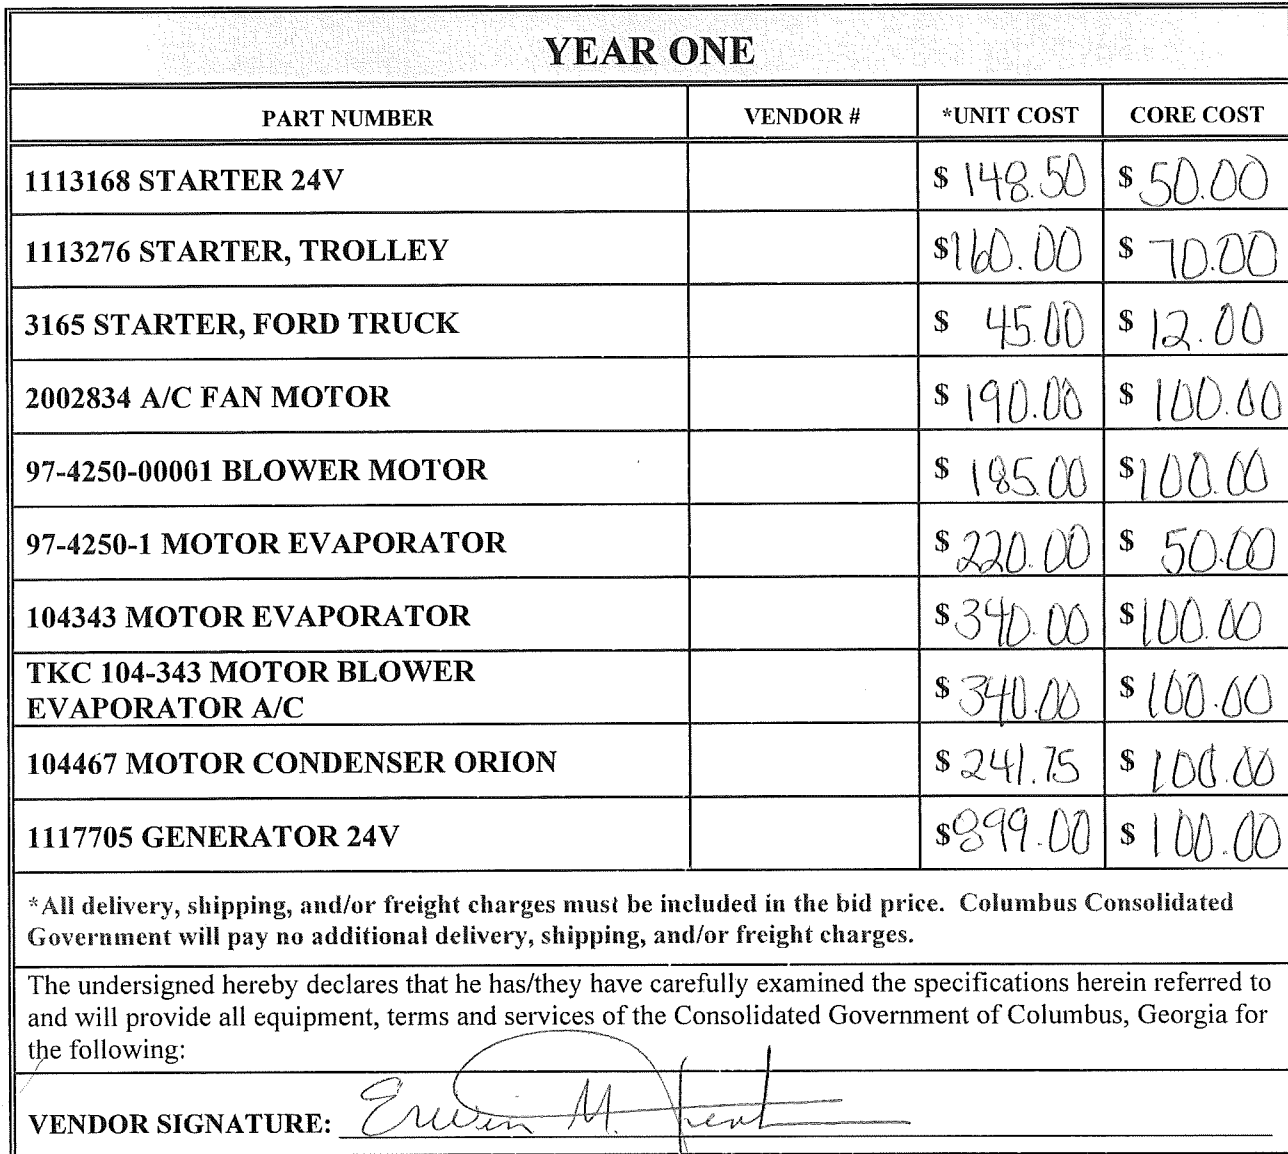 YEAR ONE
PART NUMBER VENDOR # *UNIT COST CORE COST
1113168 STARTER 24V $ 148.50 $ 50.00
1113276 STARTER, TROLLEY $ 160.00 $ 70.00
3165 STARTER, FORD TRUCK $ 45.00 $ 12.00
2002834 A/C FAN MOTOR $ 190.00 $ 100.00
97-4250-00001 BLOWER MOTOR $ 185.00 $ 100.00
97-4250-1 MOTOR EVAPORATOR $ 220.00 $ 50.00
104343 MOTOR EVAPORATOR $ 340.00 $ 100.00
TKC 104-343 MOTOR BLOWER
EVAPORATOR A/C $ 340.00 $ 100.00
104467 MOTOR CONDENSER ORION $ 241.75 $ 100.00
1117705 GENERATOR 24V $ 899.00 $ 100.00
*All delivery, shipping, and/or freight charges must be included in the bid price. Columbus Consolidated
Government will pay no additional delivery, shipping, and/or freight charges.
The undersigned hereby declares that he has/they have carefully examined the specifications herein referred to
and will provide all equipment, terms and services of the Consolidated Government of Columbus, Georgia for
the following:
VENDOR SIGNATURE: Erwin M.